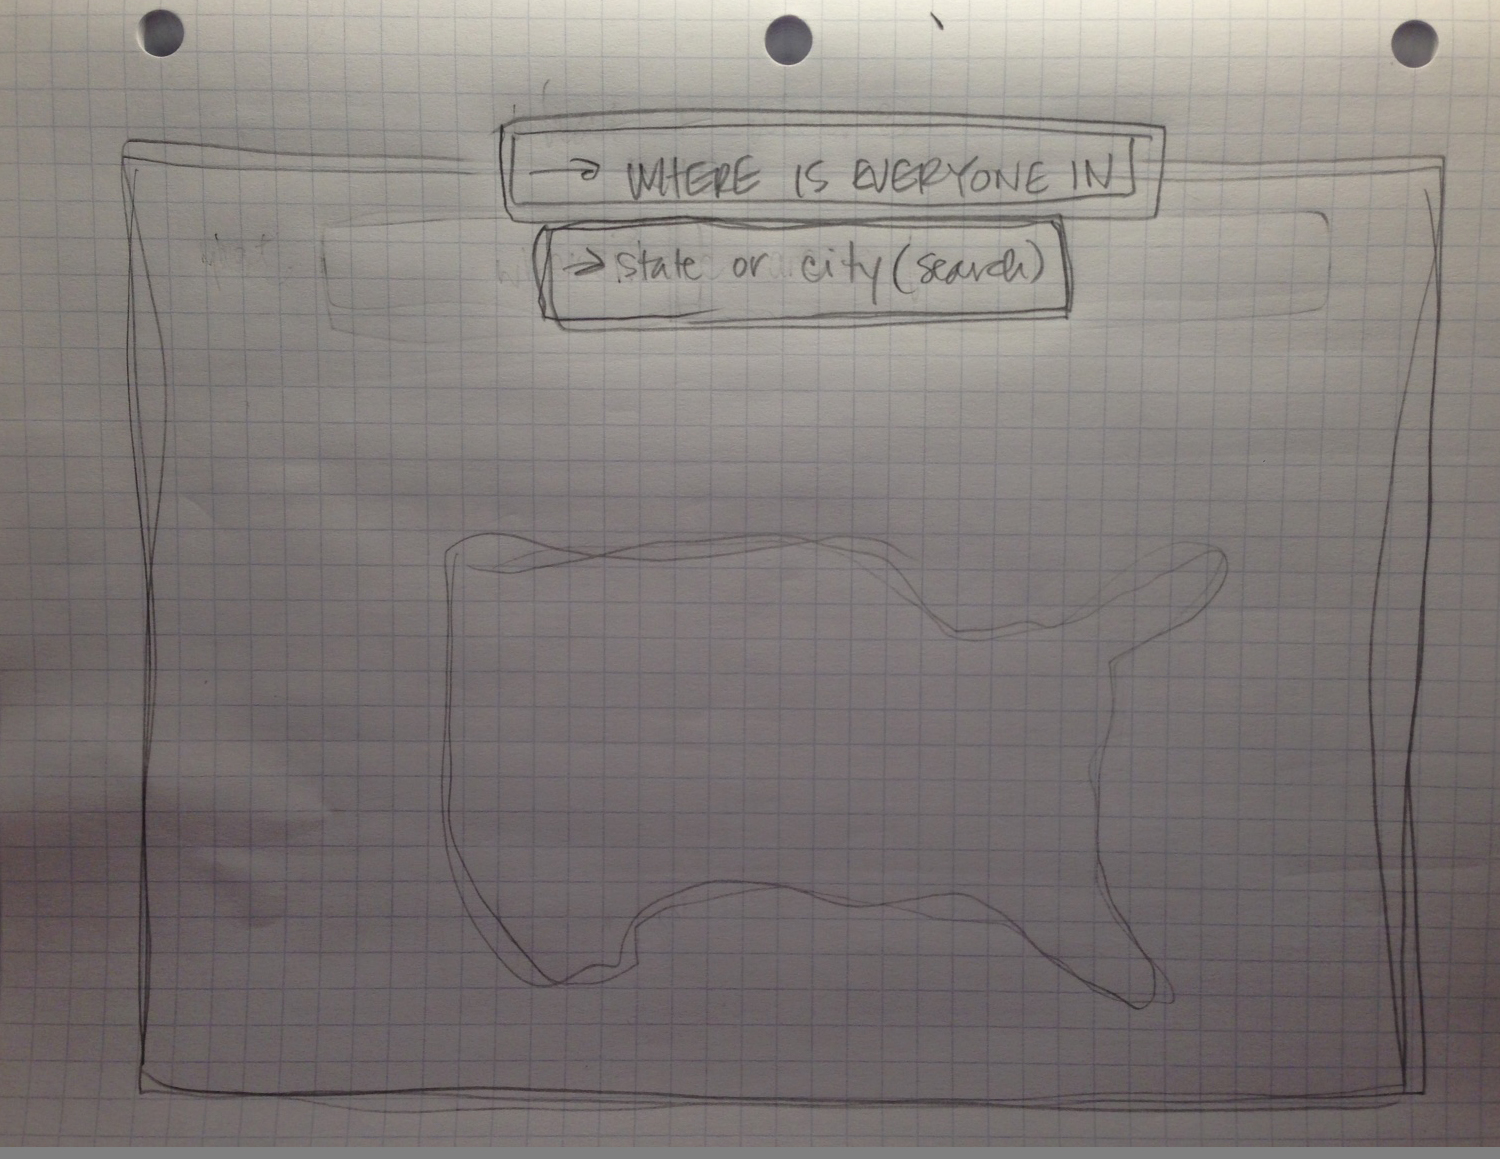 → WHERE IS EVERYONE IN
→ state or city (search)